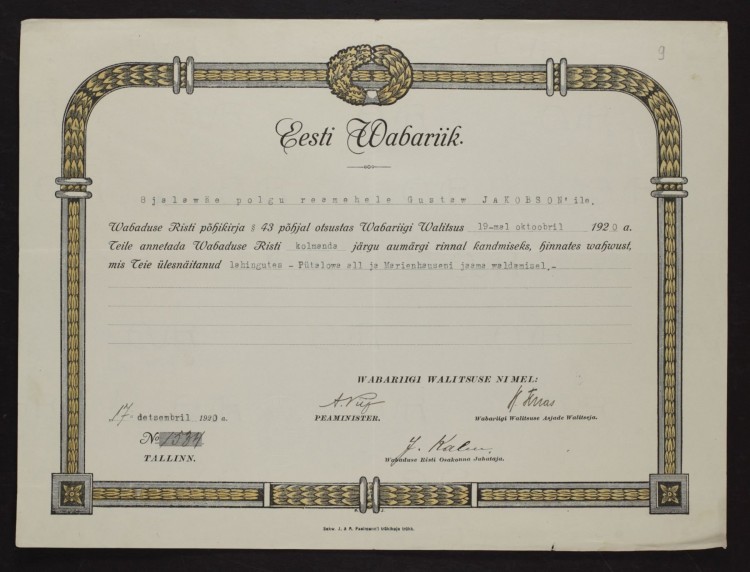 9
Eesti Wabariik.
Sjalawäe polgu reamehele Gustaw JAKOBSON'ile,
Wabaduse Risti põhikirja § 43 põhjal otsustas Wabariigi Walitsus 19-mal oktoobril 1920 a.
Teile annetada Wabaduse Risti kolmanda järgu aumärgi rinnal kandmiseks, hinnates wahwust,
mis Teie ülesnäitanud lahingutes - Pütalowa all ja Marienhauseni jaama waldamisel.-
WABARIIGI WALITSUSE NIMEL:
17. detsembril 1920 a.
PEAMINISTER.
Wabariigi Walitsuse Asjade Walitseja.
No 1534
J. Kalm
TALLINN.
Wabaduse Risti Osakonna Juhataja.